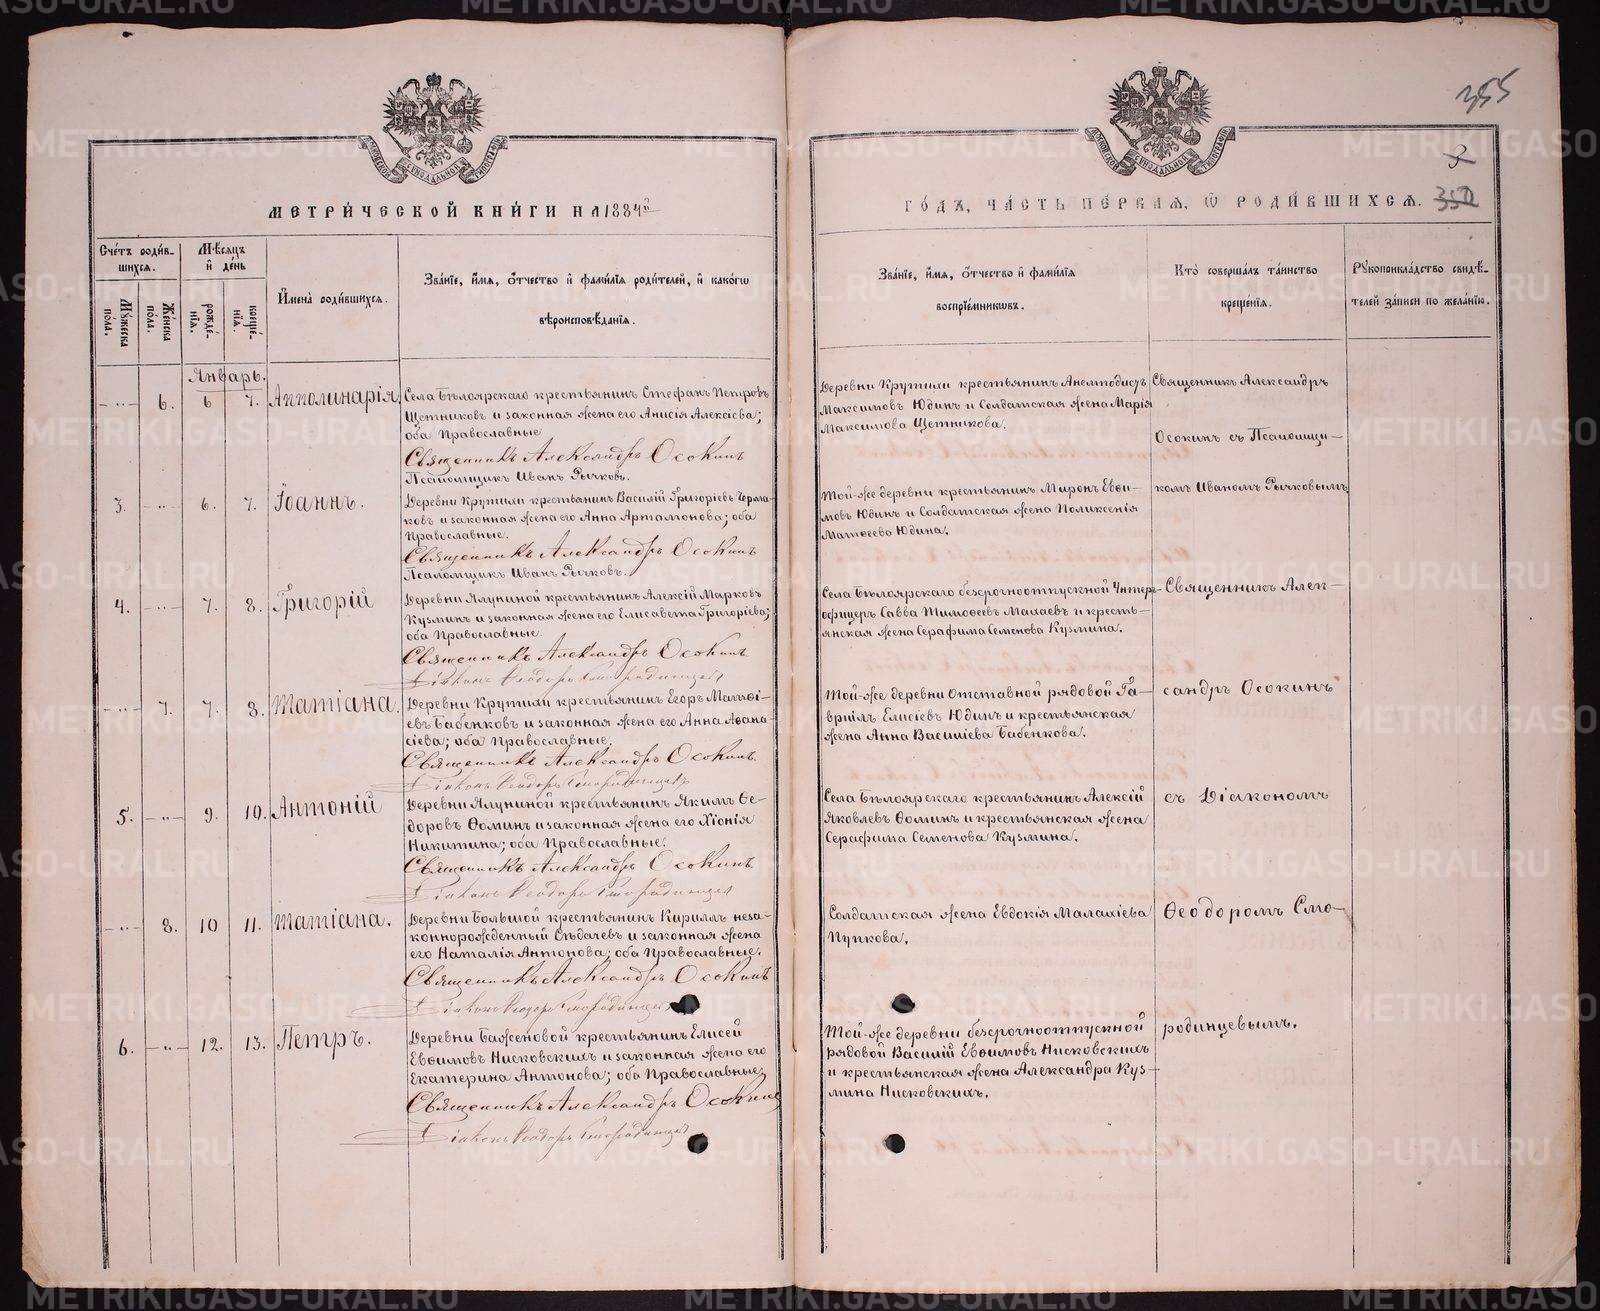 355
3
350
МОСКОВСКОЙ СѴНОДАЛЬНОЙ ТИПОГРАФІИ
МОСКОВСКОЙ СѴНОДАЛЬНОЙ ТИПОГРАФІИ
МЕТРИ́ЧЕСКОЙ КНИ́ГИ НА 1884й
ГО́ДЪ, ЧА́СТЬ ПЕ́РВАЯ, Ѡ РОДИ́ВШИХСЯ.
Сче́тъ роди́в-
шихся.
Му́жеска по́ла.
Же́нска по́ла.
Мѣ́сяцъ
и҆ де́нь
рожде́-
нїя.
креще́-
нїя.
И҆мена̀ роди́вшихся.
Зва́нїе, и҆́мя, ѻ҆́тчество и҆ фами́лїя роди́телей, и҆ како́гѡ
вѣроисповѣ́данїя.
Зва́нїе, и҆́мя, ѻ҆́тчество и҆ фами́лїя
воспрїе́мникѡвъ.
Кто̀ соверша́лъ та́инство
креще́нїя.
Рꙋкоприкла́дство свидѣ́-
телей за́писи по жела́нїю.
Январь.
-"- 6. 6 7. Апполинарія.
Села Бѣлоярскаго крестьянинъ Стефанъ Петровъ
Щетниковъ и законная жена его Анисія Алексіева;
оба Православные
Священникъ Александръ Осокинъ
Псаломщикъ Иванъ Рычковъ.
Деревни Крутихи крестьянинъ Анемподистъ
Максимовъ Юдинъ и Солдатская жена Марія
Максимова Щетникова.
Священникъ Александръ
Осокинъ съ Псаломщи-
3. -"- 6. 7. Іоаннъ.
Деревни Крутихи крестьянинъ Василій Григоріевъ
ковъ и законная жена его Анна Артамонова; оба
Православные.
Священникъ Александръ Осокинъ
Псаломщикъ Иванъ Рычковъ.
Той-же деревни крестьянинъ Миронъ Евѳи-
мовъ Юдинъ и Солдатская жена Поликсенія
Матѳеева Юдина.
комъ Иваномъ Рычковымъ
4. -"- 7. 8. Григорій
Деревни Ялуниной крестьянинъ Алексій Марковъ
Кузминъ и законная жена его Елисавета Григоріева;
оба Православные.
Священникъ Александръ Осокинъ
Діаконъ Ѳеодоръ Смородинцевъ
Села Бѣлоярскаго безсрочноотпускной Унтеръ-
офицеръ Савва Тимоѳеевъ Малаевъ и кресть-
янская жена Серафима Семенова Кузмина.
Священникъ Алек-
-"- 7. 7. 8. Татіана.
Деревни Крутихи крестьянинъ Егоръ Матѳі-
евъ Бабенковъ и законная жена его Анна Аѳана-
сіева; оба Православные.
Священникъ Александръ Осокинъ.
Діаконъ Ѳеодоръ Смородинцевъ
Той-же деревни отставной рядовой Га-
вріилъ Елисіевъ Юдинъ и крестьянская
жена Анна Василіева Бабенкова.
сандръ Осокинъ
5. -"- 9. 10. Антоній
Деревни Ялуниной крестьянинъ Якимъ Ѳе-
доровъ Ѳоминъ и законная жена его Хіонія
Никитина; оба Православные.
Священникъ Александръ Осокинъ
Діаконъ Ѳеодоръ Смородинцевъ
Села Бѣлоярскаго крестьянинъ Алексій
Яковлевъ Ѳоминъ и крестьянская жена
Серафима Семенова Кузмина.
съ Діакономъ
-"- 8. 10 11. Татіана.
Деревни Большой крестьянинъ Кириллъ неза-
коннорожденный Сѣдачевъ и законная жена
его Наталія Антонова; оба Православные.
Священникъ Александръ Осокинъ
Діаконъ Ѳеодоръ Смородинцевъ
Солдатская жена Евдокія Малахіева
Пупкова.
Ѳеодоромъ Смо-
6. -"- 12. 13. Петръ.
Деревни Баженовой крестьянинъ Елисей
Евѳимовъ Нисковскихъ и законная жена его
Екатерина Антонова; оба Православные.
Священникъ Александръ Осокинъ
Діаконъ Ѳеодоръ Смородинцевъ
Той-же деревни безсрочноотпускной
рядовой Василій Евѳимовъ Нисковскихъ
и крестьянская жена Александра Куз-
мина Нисковскихъ.
родинцевымъ.
METRIKI.GASO-URAL.RU